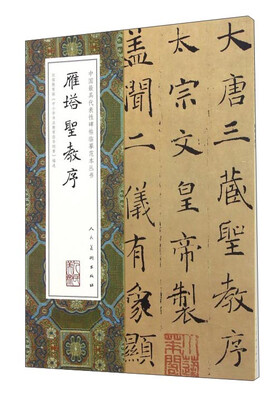 大唐三藏聖教序
太宗文皇帝製
蓋聞二儀有象顯
中国最具代表性碑帖临摹范本丛书
雁塔聖教序
人民美術出版社